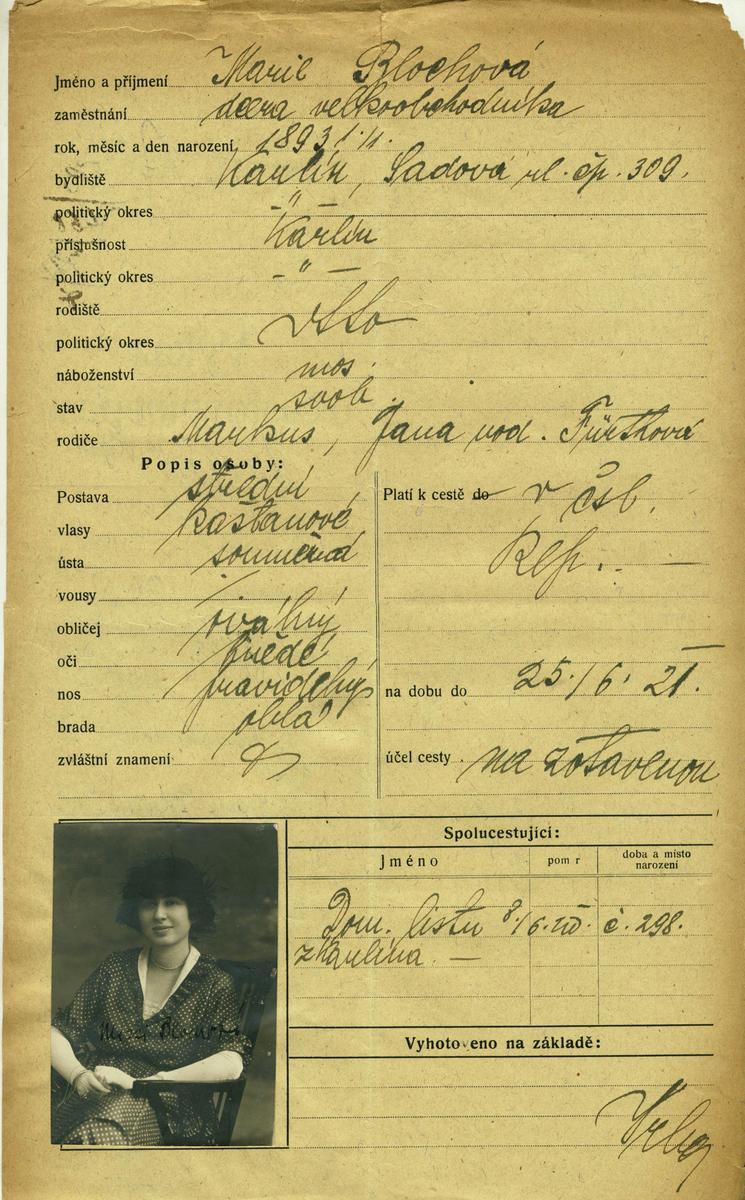 Jméno a příjmení Marie Blochová
zaměstnání dcera velkoobchodníka
rok, měsíc a den narození 1893
bydliště Karlín, Sadová ul. čp. 309.
politický okres — " —
příslušnost Karlín
politický okres — " —
rodiště
politický okres
náboženství mos.
stav svob.
rodiče Markus, Jana roz. Fürthová
Popis osoby:
Postava střední
vlasy kaštanové
ústa souměrná
vousy
obličej oválný
oči hnědé
nos pravidelný
brada oblá
zvláštní znamení
Platí k cestě do v čsl.
Rep. —
na dobu do 25./6. 21.
účel cesty na zotavenou
Spolucestující:
Jméno pom r doba a místo
narození
Dom. listu č. 298.
z Karlína. —
Vyhotoveno na základě: